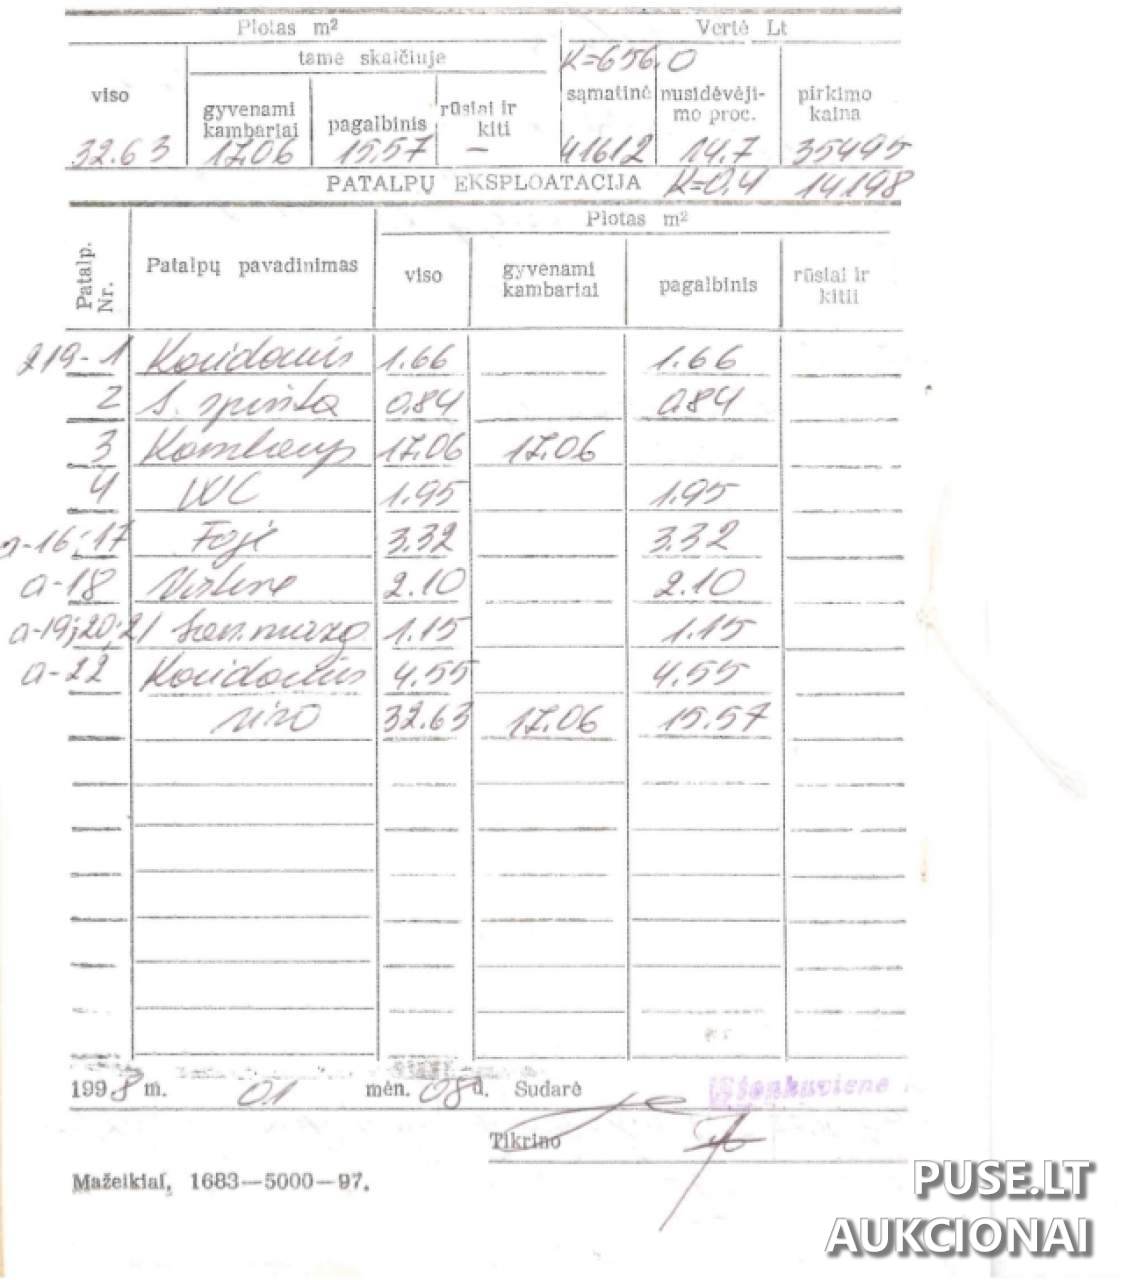 Plotas m² Vertė Lt
tame skaičiuje K=656.0
viso gyvenami kambariai pagalbinis rūsiai ir kiti sąmatinė nusidėvėji-mo proc. pirkimo kaina
32.63 17.06 15.57 — 41612 14.7 35495
PATALPŲ EKSPLOATACIJA K=0,4 14198
Plotas m²
Patalp. Nr. Patalpų pavadinimas viso gyvenami kambariai pagalbinis rūsiai ir kitii
219-1 Koridorius 1.66 1.66
2 S. spinta 0.84 0.84
3 Kambarys 17.06 17.06
4 WC 1.95 1.95
a-16;17 Fojė 3.32 3.32
a-18 Virtuvė 2.10 2.10
a-19;20;21 San. mazg 1.15 1.15
a-22 Koridorius 4.55 4.55
viso 32.63 17.06 15.57
1998 m. 01 mėn. 08 d. Sudarė
Tikrino
Mažeikiai, 1683—5000—97.
PUSE.LT
AUKCIONAI